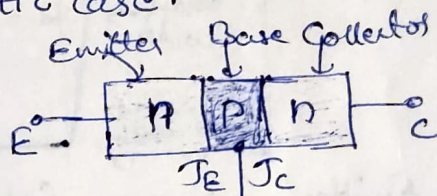 tic case.
Emitter Base Collector
n P n
E C
JE JC